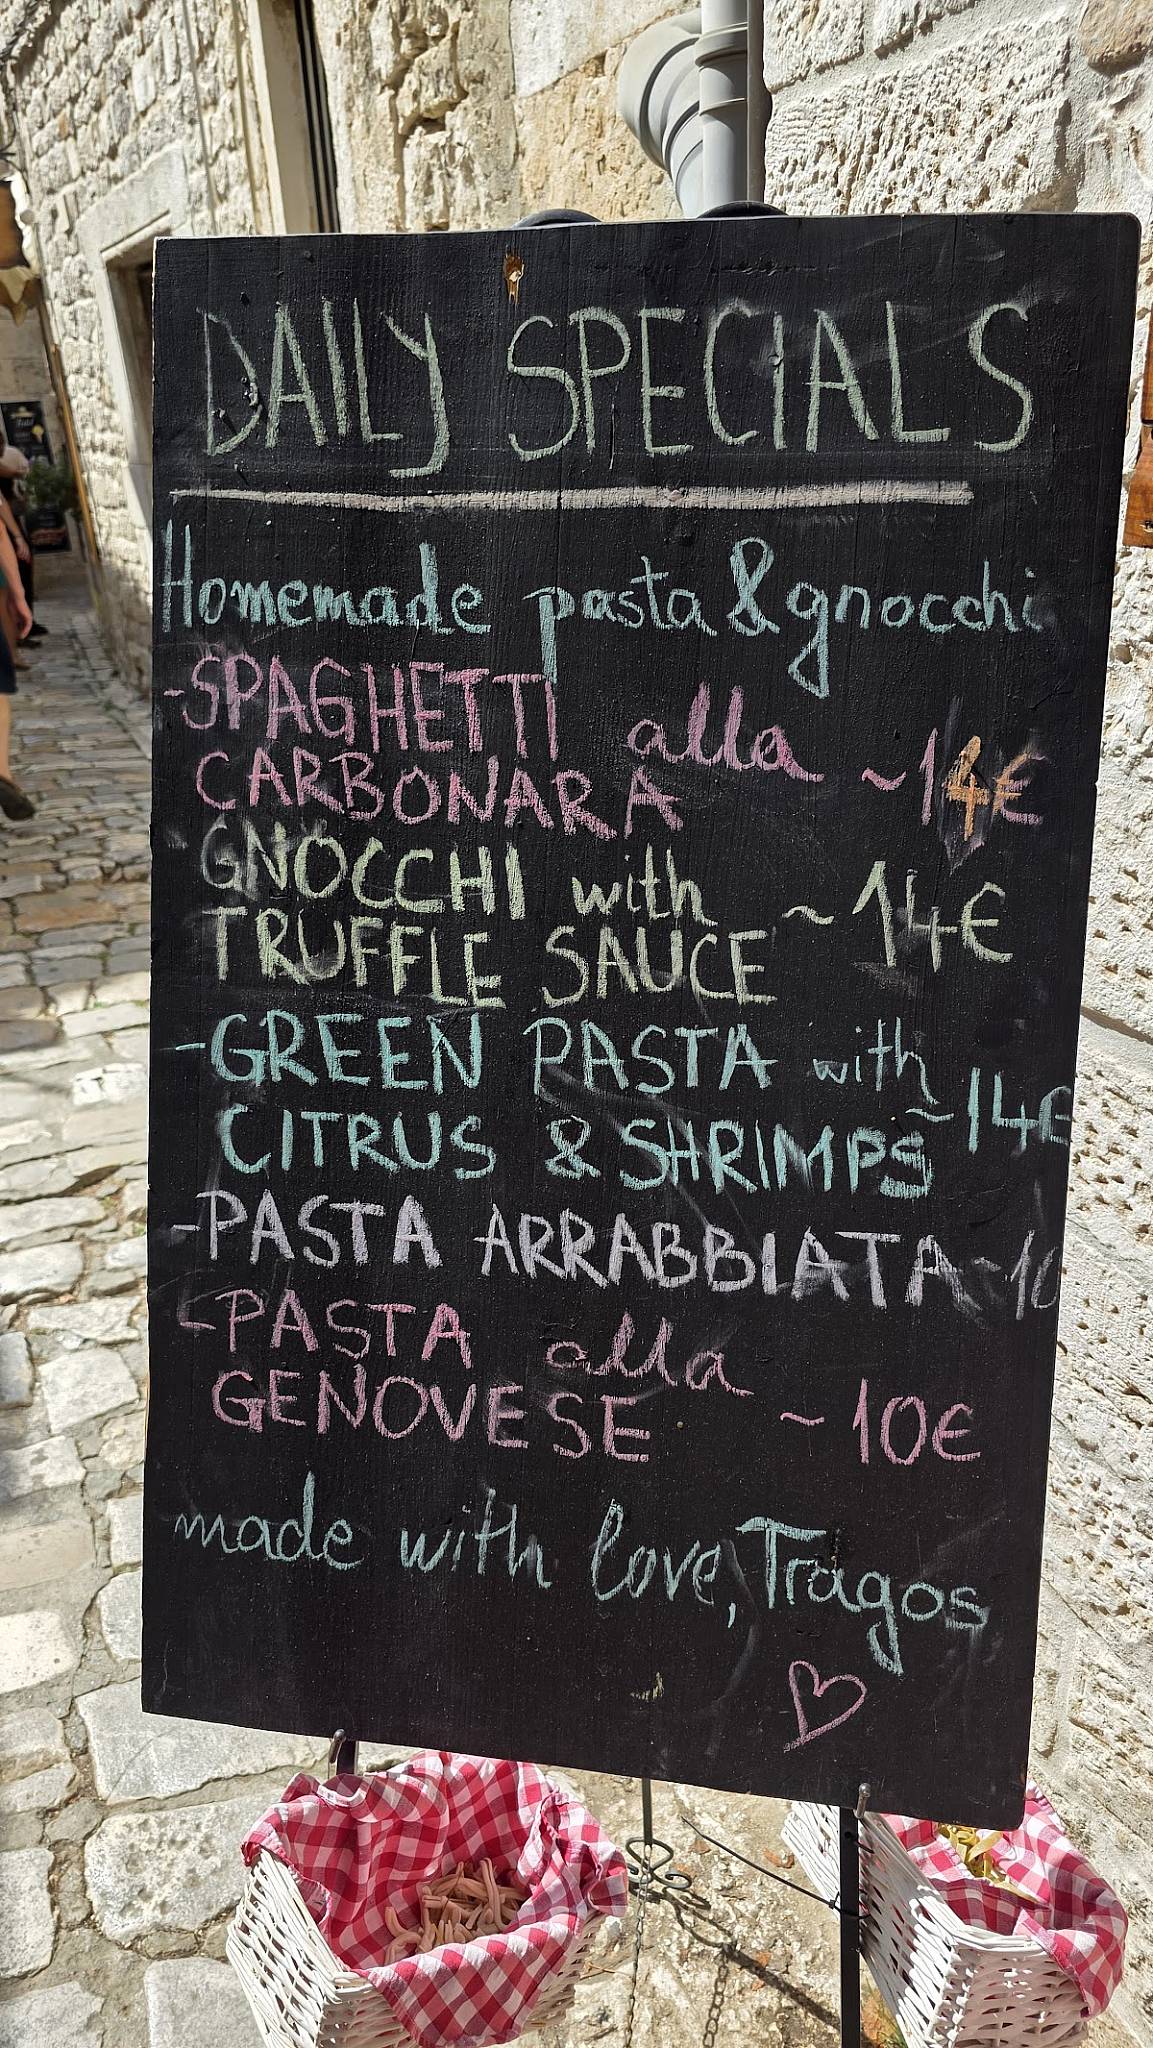 DAILY SPECIALS
Homemade pasta & gnocchi
-SPAGHETTI alla
CARBONARA ~14€
GNOCCHI with
TRUFFLE SAUCE ~14€
-GREEN PASTA with
CITRUS & SHRIMPS ~14€
-PASTA ARRABBIATA ~10
-PASTA alla
GENOVESE ~10€
made with love, Tragos